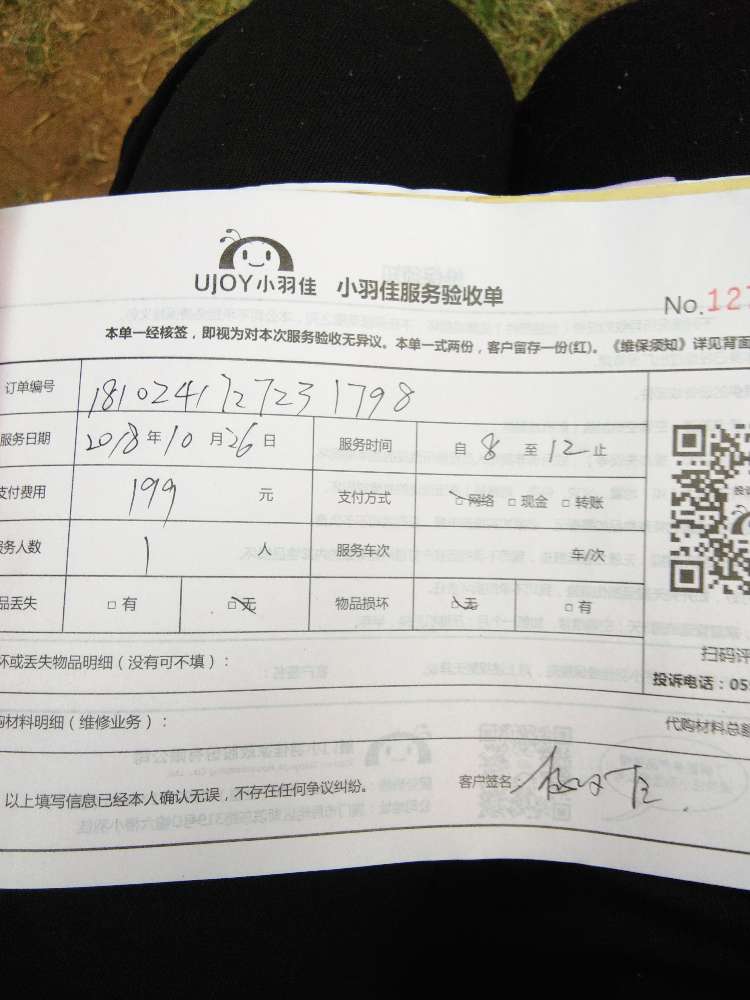 UJOY小羽佳 小羽佳服务验收单
No.127
本单一经核签，即视为对本次服务验收无异议。本单一式两份，客户留存一份(红)。《维保须知》详见背面
订单编号 181024172723 1798
服务日期 2018 年 10 月 26 日 服务时间 自 8 至 12 止
支付费用 199 元 支付方式 □网络 □现金 □转账
服务人数 1 人 服务车次 车/次
品丢失 □有 □无 物品损坏 □无 □有
坏或丢失物品明细（没有可不填）：
扫码评
投诉电话：059
购材料明细（维修业务）：
代购材料总额
以上填写信息已经本人确认无误，不存在任何争议纠纷。 客户签名